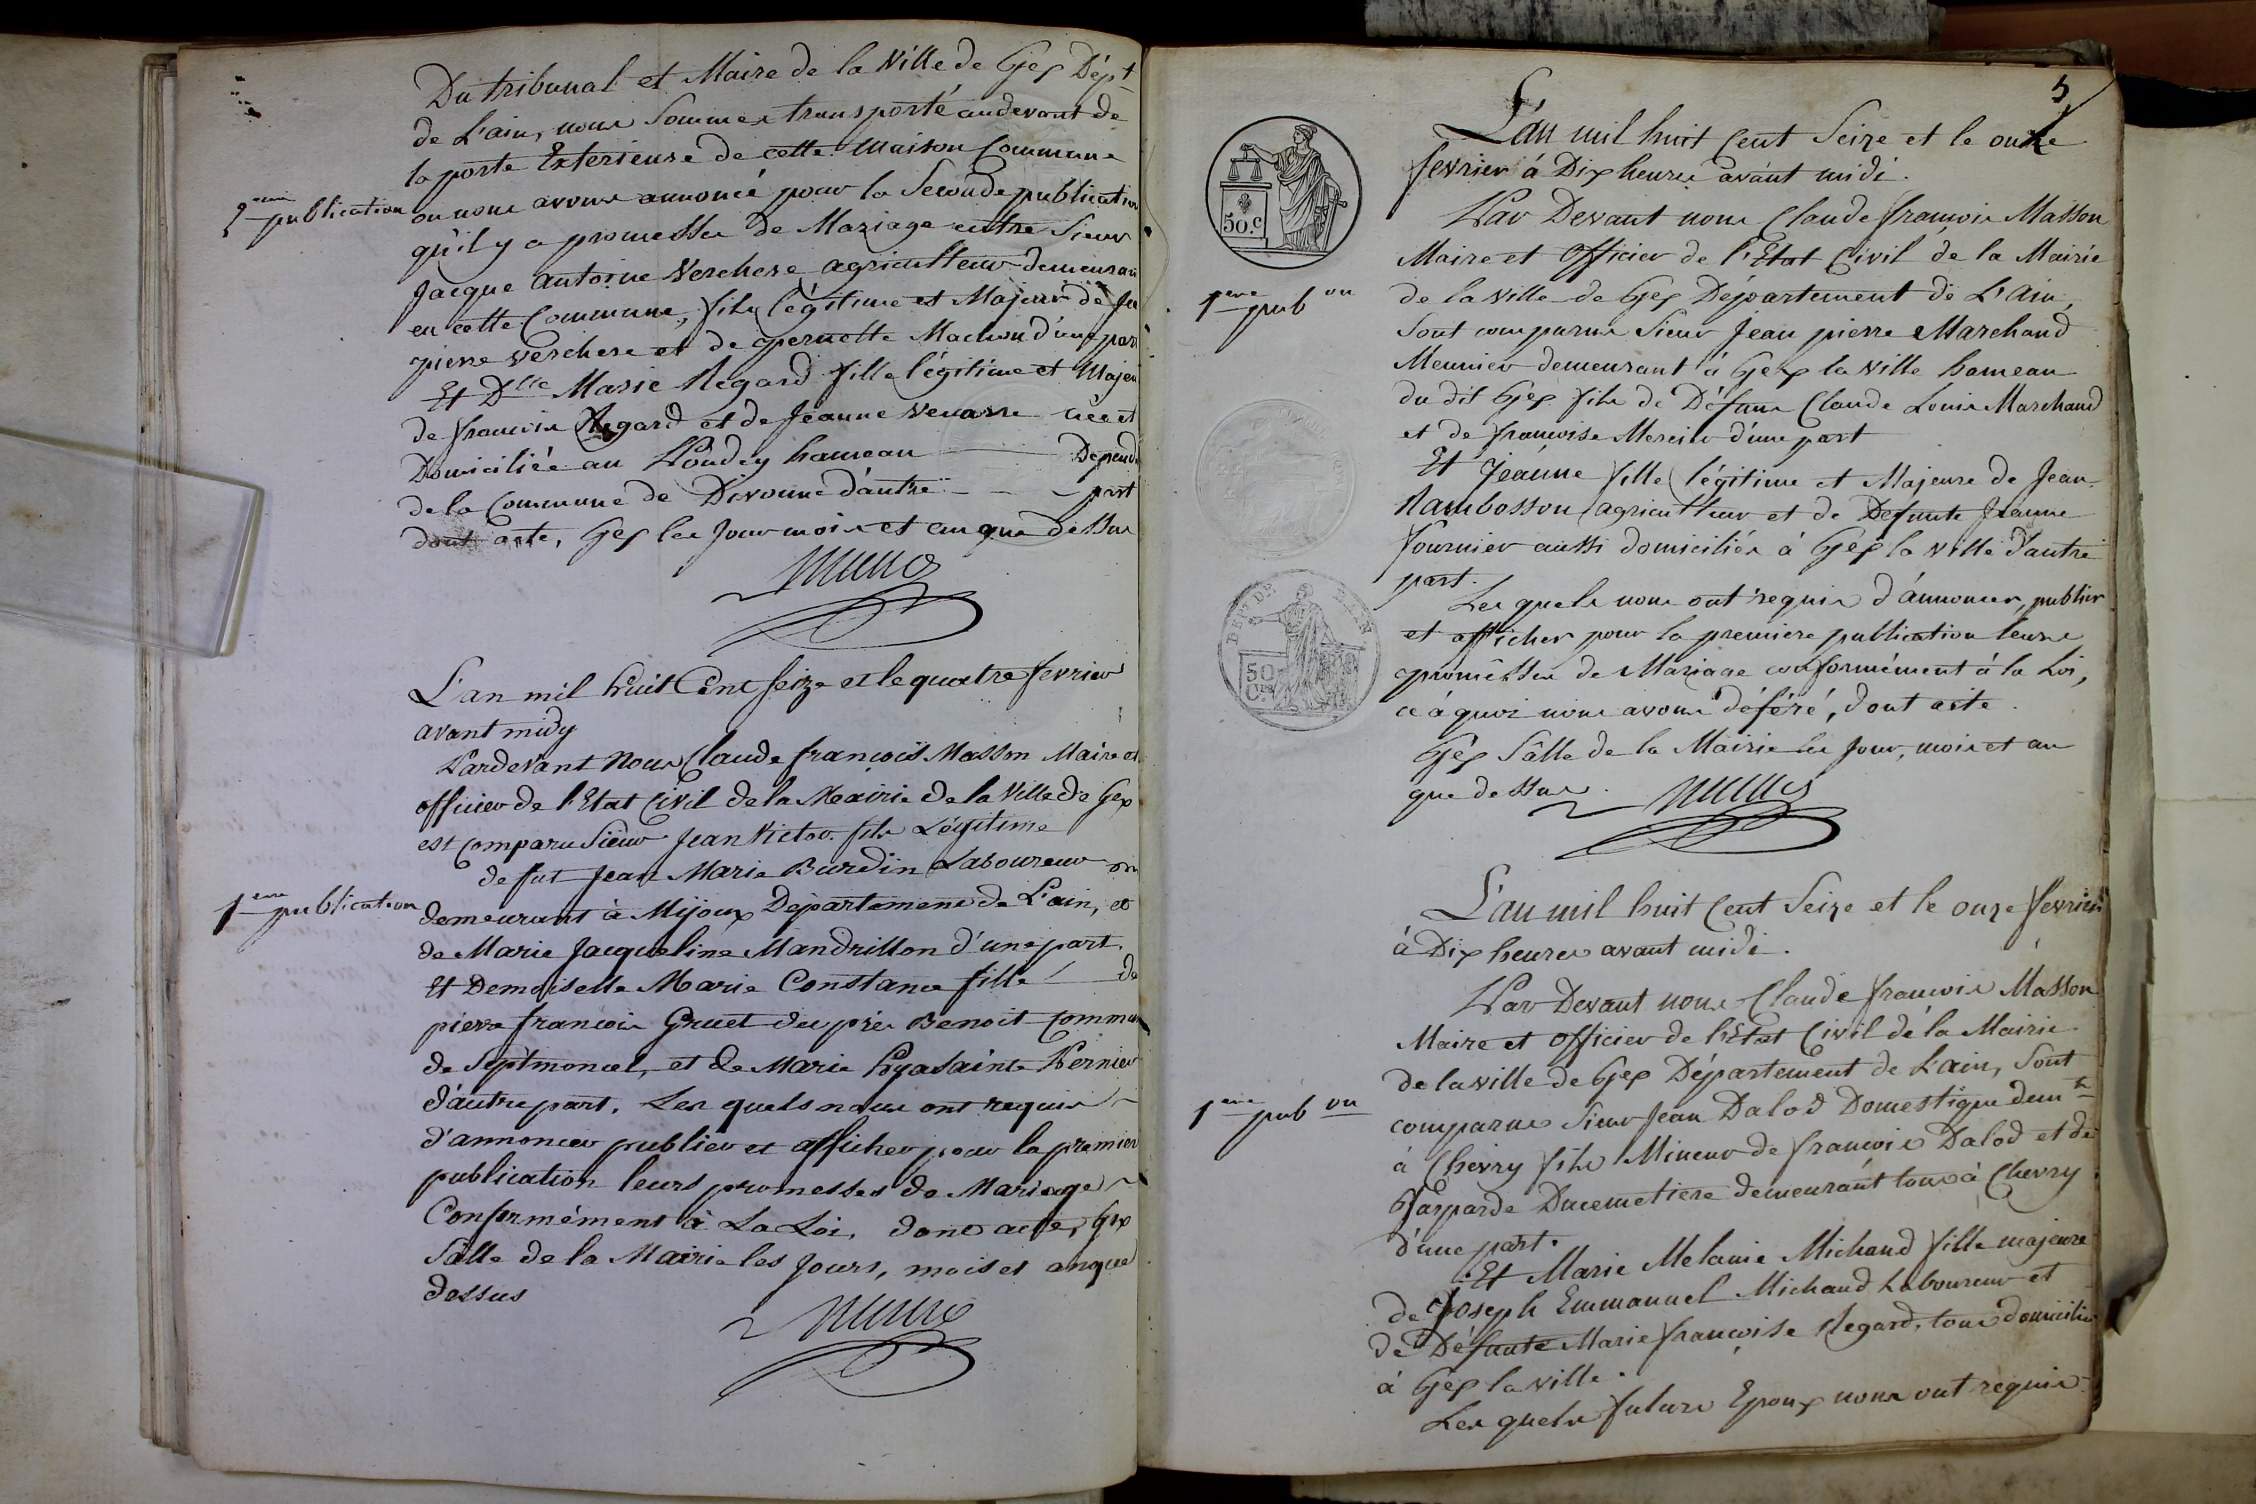 Du tribunal et Maire de la Ville de Gex Dép.t
de L'ain, nous Sommes transporté audevant de
la porte Exterieure de cette Maison Commune
2eme publication
ou nous avons annoncé pour la Seconde publication
qu'il y a promesses de Mariage entre Sieur
Jacque antoine Verchere agriculteur demeurant
en cette Commune, fils légitime et Majeur de
pierre Verchere et de pernette Machon d'une part
Et Dlle Marie Regard fille légitime et Majeu
de francois Regard et de Jeanne née et
Domiciliée au hameau Depend
de la Commune de Divonne d'autre part
dont acte, Gex les Jour mois et an que dessus
L'an mil huit Cent seize et le quatre fevrier
avant midy
Pardevant Nous Claude françois Masson Maire et
officier de l'Etat Civil de la Mairie de la Ville de Gex
est Comparu Sieur Jean Victor fils Légitime
de fut Jean Marie Burdin Laboureur
1ere publication
demeurant à Mijoux Département de L'ain, et
de Marie Jacqueline Mandrillon d'une part.
Et Demoiselle Marie Constance fille de
pierre francois Gruet du pré Benoit Commun
de Septmoncel, et de Marie Hyasainte Vernier
d'autre part. Les quels nous ont requis
d'annoncer publier et afficher pour la premier
publication leurs promesses de Mariage
Conformément à La Loi, dont acte, Gex
Sâlle de la Mairie les Jours, mois et an que
dessus
5
L'an mil huit Cent Seize et le onze
fevrier à Dix heures avant midi.
50.c
Par Devant nous Claude francois Masson
Maire et Officier de l'Etat Civil de la Mairie
1ere pub on
de la Ville de Gex Département de L'Ain,
Sont comparus Sieur Jean pierre Marchand
Meunier demeurant à Gex la Ville hameau
du dit Gex fils de Défunt Claude Louis Marchand
et de francoise Mercier d'une part
Et Jeanne fille légitime et Majeure de Jean
Rambosson agriculteur et de Defunte Jeanne
fournier aussi domiciliés à Gex la Ville d'autre
part.
Les quels nous ont requis d'annoncer, publier
et afficher pour la premiere publication leurs
DEPT DE L'AIN
50
promêsses de Mariage conformément à la Loi,
ce à quoi nous avons déféré, dont acte.
Gex Sâlle de la Mairie les Jour, mois et an
que dessus.
L'an mil huit Cent Seize et le onze fevrier
à Dix heures avant midi.
Par Devant nous Claude francois Masson
Maire et officier de l'Etat Civil de la Mairie
de la ville de Gex Département de L'ain, Sont
1ere pub on
comparus Sieur Jean Dalod Domestique demt
à Chevry fils Mineur de francois Dalod et de
Gasparde Ducemetiere demeurant tous à Chevry
d'une part.
Et Marie Melanie Michaud fille majeure
de Joseph Emmanuel Michaud Laboureur et
de Défunte Marie francoise Regard, tous domiciliés
à Gex la ville.
Les quels futurs Epoux nous ont requis